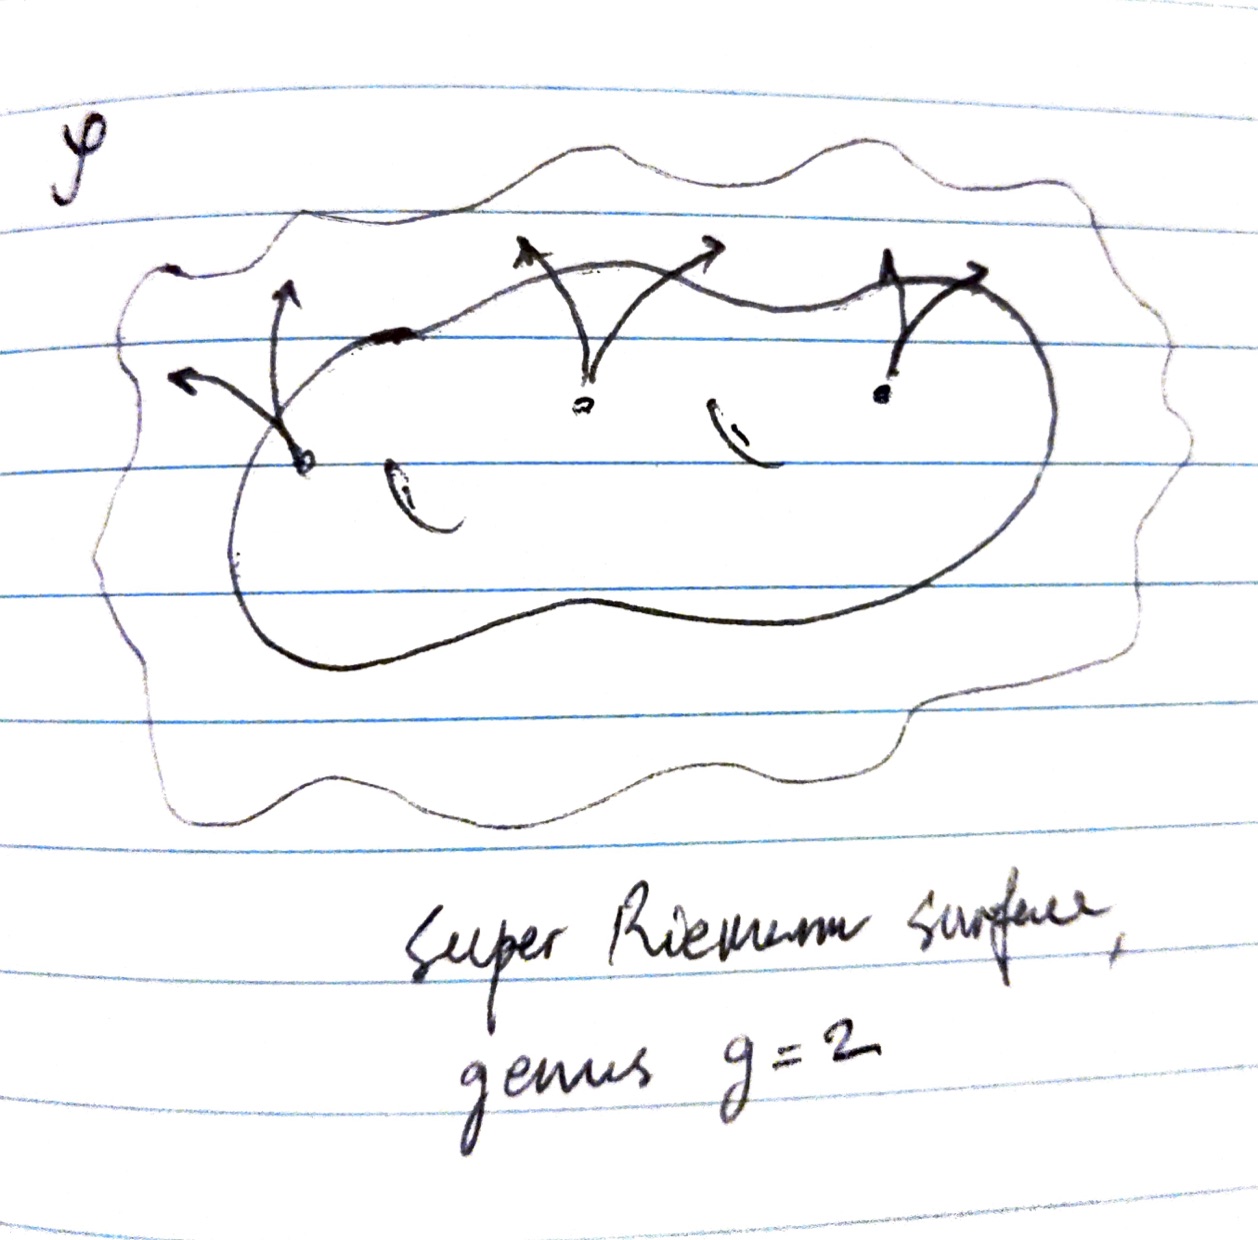 φ
Super Riemann surface,
genus g = 2